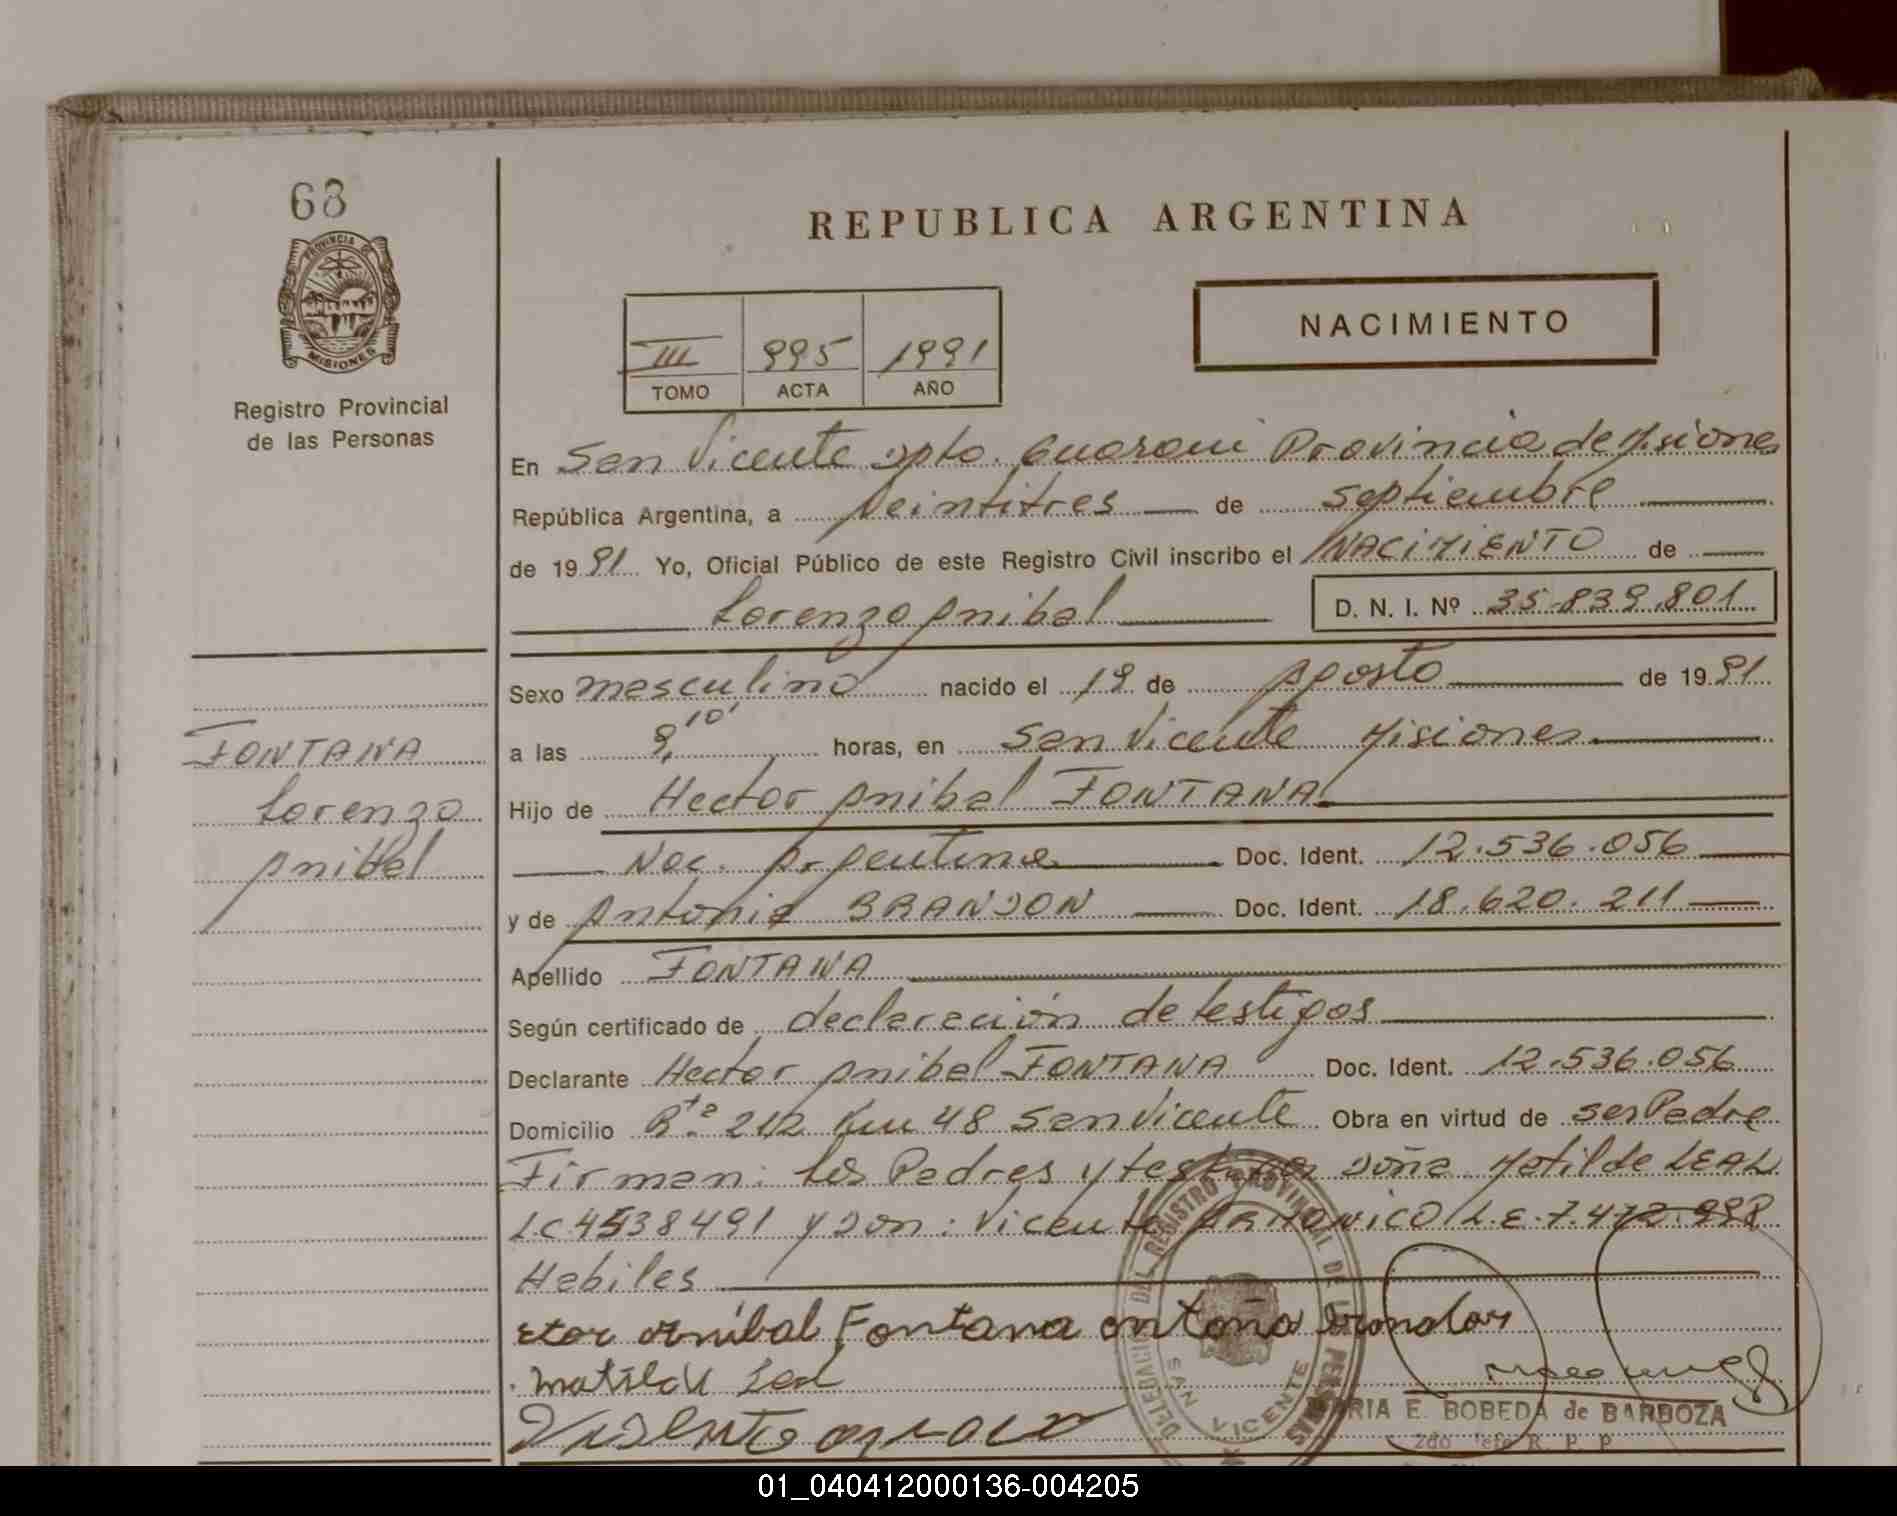 68
PROVINCIA DE
MISIONES
Registro Provincial
de las Personas
REPUBLICA ARGENTINA
NACIMIENTO
III 995 1991
TOMO ACTA AÑO
En San Vicente Dpto. Guarani Provincia de Misiones
República Argentina, a Veintitres de Septiembre
de 1991 Yo, Oficial Público de este Registro Civil inscribo el NACIMIENTO de
Lorenzo Anibal D. N. I. Nº 35.839.801
Sexo masculino nacido el 19 de Agosto de 1991
a las 9,10' horas, en San Vicente Misiones
Hijo de Hector Anibal FONTANA
Nac. Argentina Doc. Ident. 12.536.056
y de Antonia BRANDON Doc. Ident. 18.620.211
Apellido FONTANA
Según certificado de declaración de testigos
Declarante Hector Anibal FONTANA Doc. Ident. 12.536.056
Domicilio Rta 212 Km 48 San Vicente Obra en virtud de ser Padre
Firman: los Padres y testigos Doña Matilde LEAL
LC 4538491 y Don: Vicente L.E. 7.472.998
Habiles
FONTANA
Lorenzo
Anibal
etor anibal Fontana antoña brondon
Matilde Leal
DELEGACION DEL REGISTRO PROVINCIAL DE LAS PERSONAS
SAN VICENTE
MARIA E. BOBEDA de BARBOZA
2do Jefe R. P. P
01_040412000136-004205